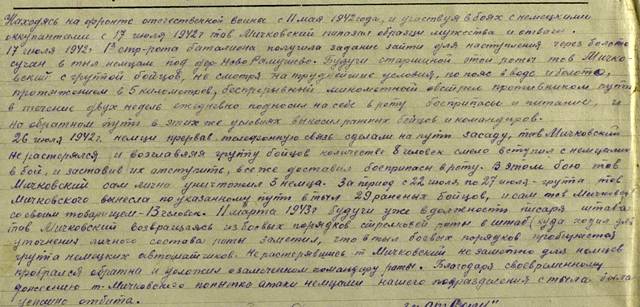 Находясь на фронте отечественной войны с 11 мая 1942 года, и участвуя в боях с немецкими
оккупантами с 17 июля 1942 г тов Мичковский показал образцы мужества и отваги.
17 июля 1942 г. 1я стр-рота баталиона получила задание зайти для наступления через болото
сучан в тыл немцам под дер Ново Рамушево. Будучи старшиной этой роты тов Мичков-
ский с группой бойцов, не смотря на труднейшие условия, по пояс в воде и болоте,
протяжением в 5 километров, беспрерывный минометный обстрел противником пути
в течение двух недель ежедневно подносил на себе в роту боеприпасы и питание, и
на обратном пути в этих же условиях выносил раненых бойцов и командиров.
26 июля 1942 г. немцы прервав телефонную связь сделали на пути засаду, тов Мичковский
не растерялся и возглавляя группу бойцов количестве 8 человек смело вступил с немцами
в бой, и заставив их отступить, все же доставил боеприпасы в роту. В этом бою тов
Мичковский сам лично уничтожил 3 немца. За период с 22 июля по 27 июля - группа тов
Мичковского вынесла по указанному пути в тыл 29 раненых бойцов, и сам тов Мичковский
со своим товарищем - 13 человек. 11 марта 1943 г будучи уже в должности писаря штаба
тов Мичковский возвращаясь из боевых порядков стрелковой роты в штаб (куда ходил для
уточнения личного состава роты) заметил, что в тыл боевых порядков пробирается
группа немецких автоматчиков. Не растерявшись т Мичковский незаметно для немцев
пробрался обратно и доложил о замеченном командиру роты. Благодаря своевременному
донесению т. Мичковского попытка атаки немцами нашего подразделения с тыла была
успешно отбита.